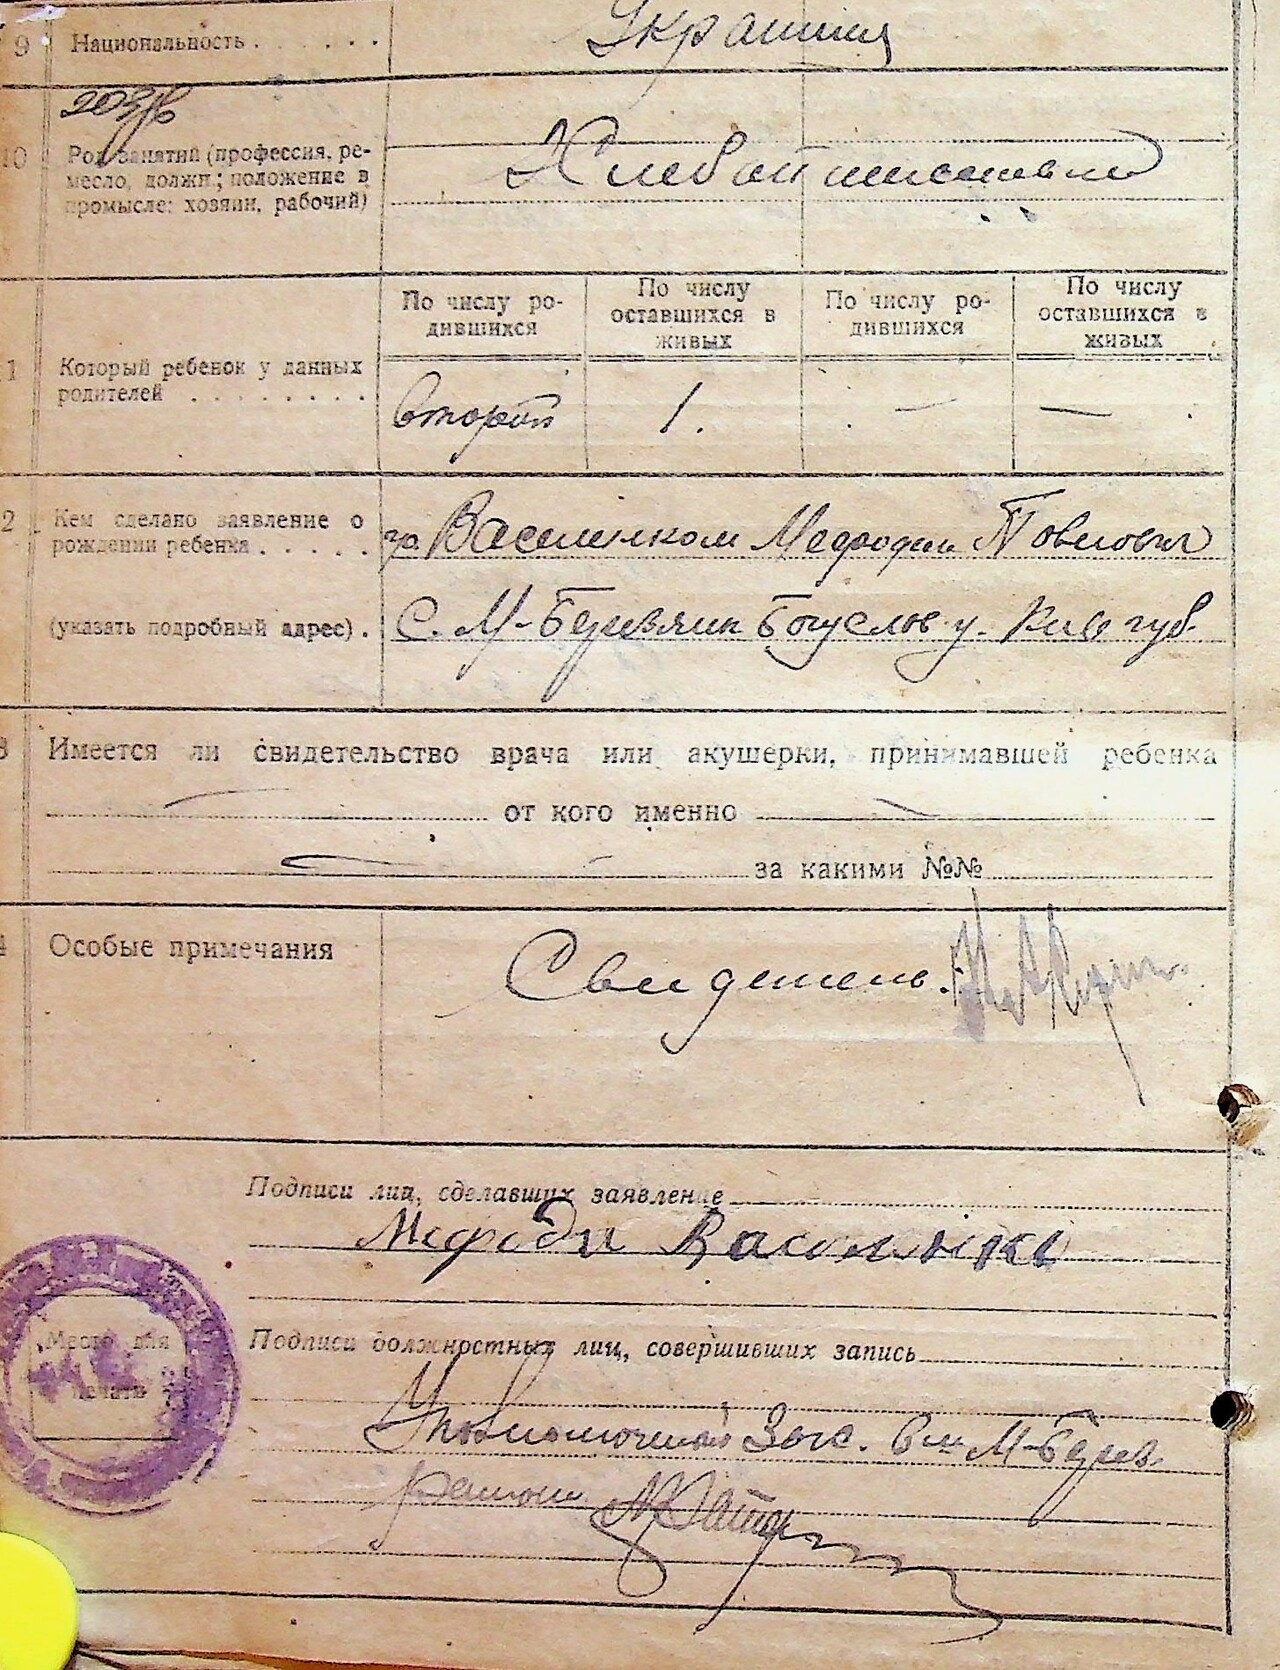 9 Национальность . . . . . . Украинця
10 Род занятий (профессия, ре-
месло, должн.; положение в
промысле: хозяин, рабочий)
По числу ро-
дившихся
По числу
оставшихся в
живых
По числу ро-
дившихся
По числу
оставшихся в
живых
1 Который ребенок у данных
родителей . . . . . . . .
второй 1. — —
2 Кем сделано заявление о
рождении ребенка . . . . .
гр. Василенком Мефодием
(указать подробный адрес) . С. М-Березянки Богуслов у. Киев губ.
3 Имеется ли свидетельство врача или акушерки, принимавшей ребенка
— от кого именно —
— за какими №№
4 Особые примечания Свидетель.
Подписи лиц, сделавших заявление
Мефоди Василенко
Место для
печати
Подписи должностных лиц, совершивших запись
Уполномоченный Загс.